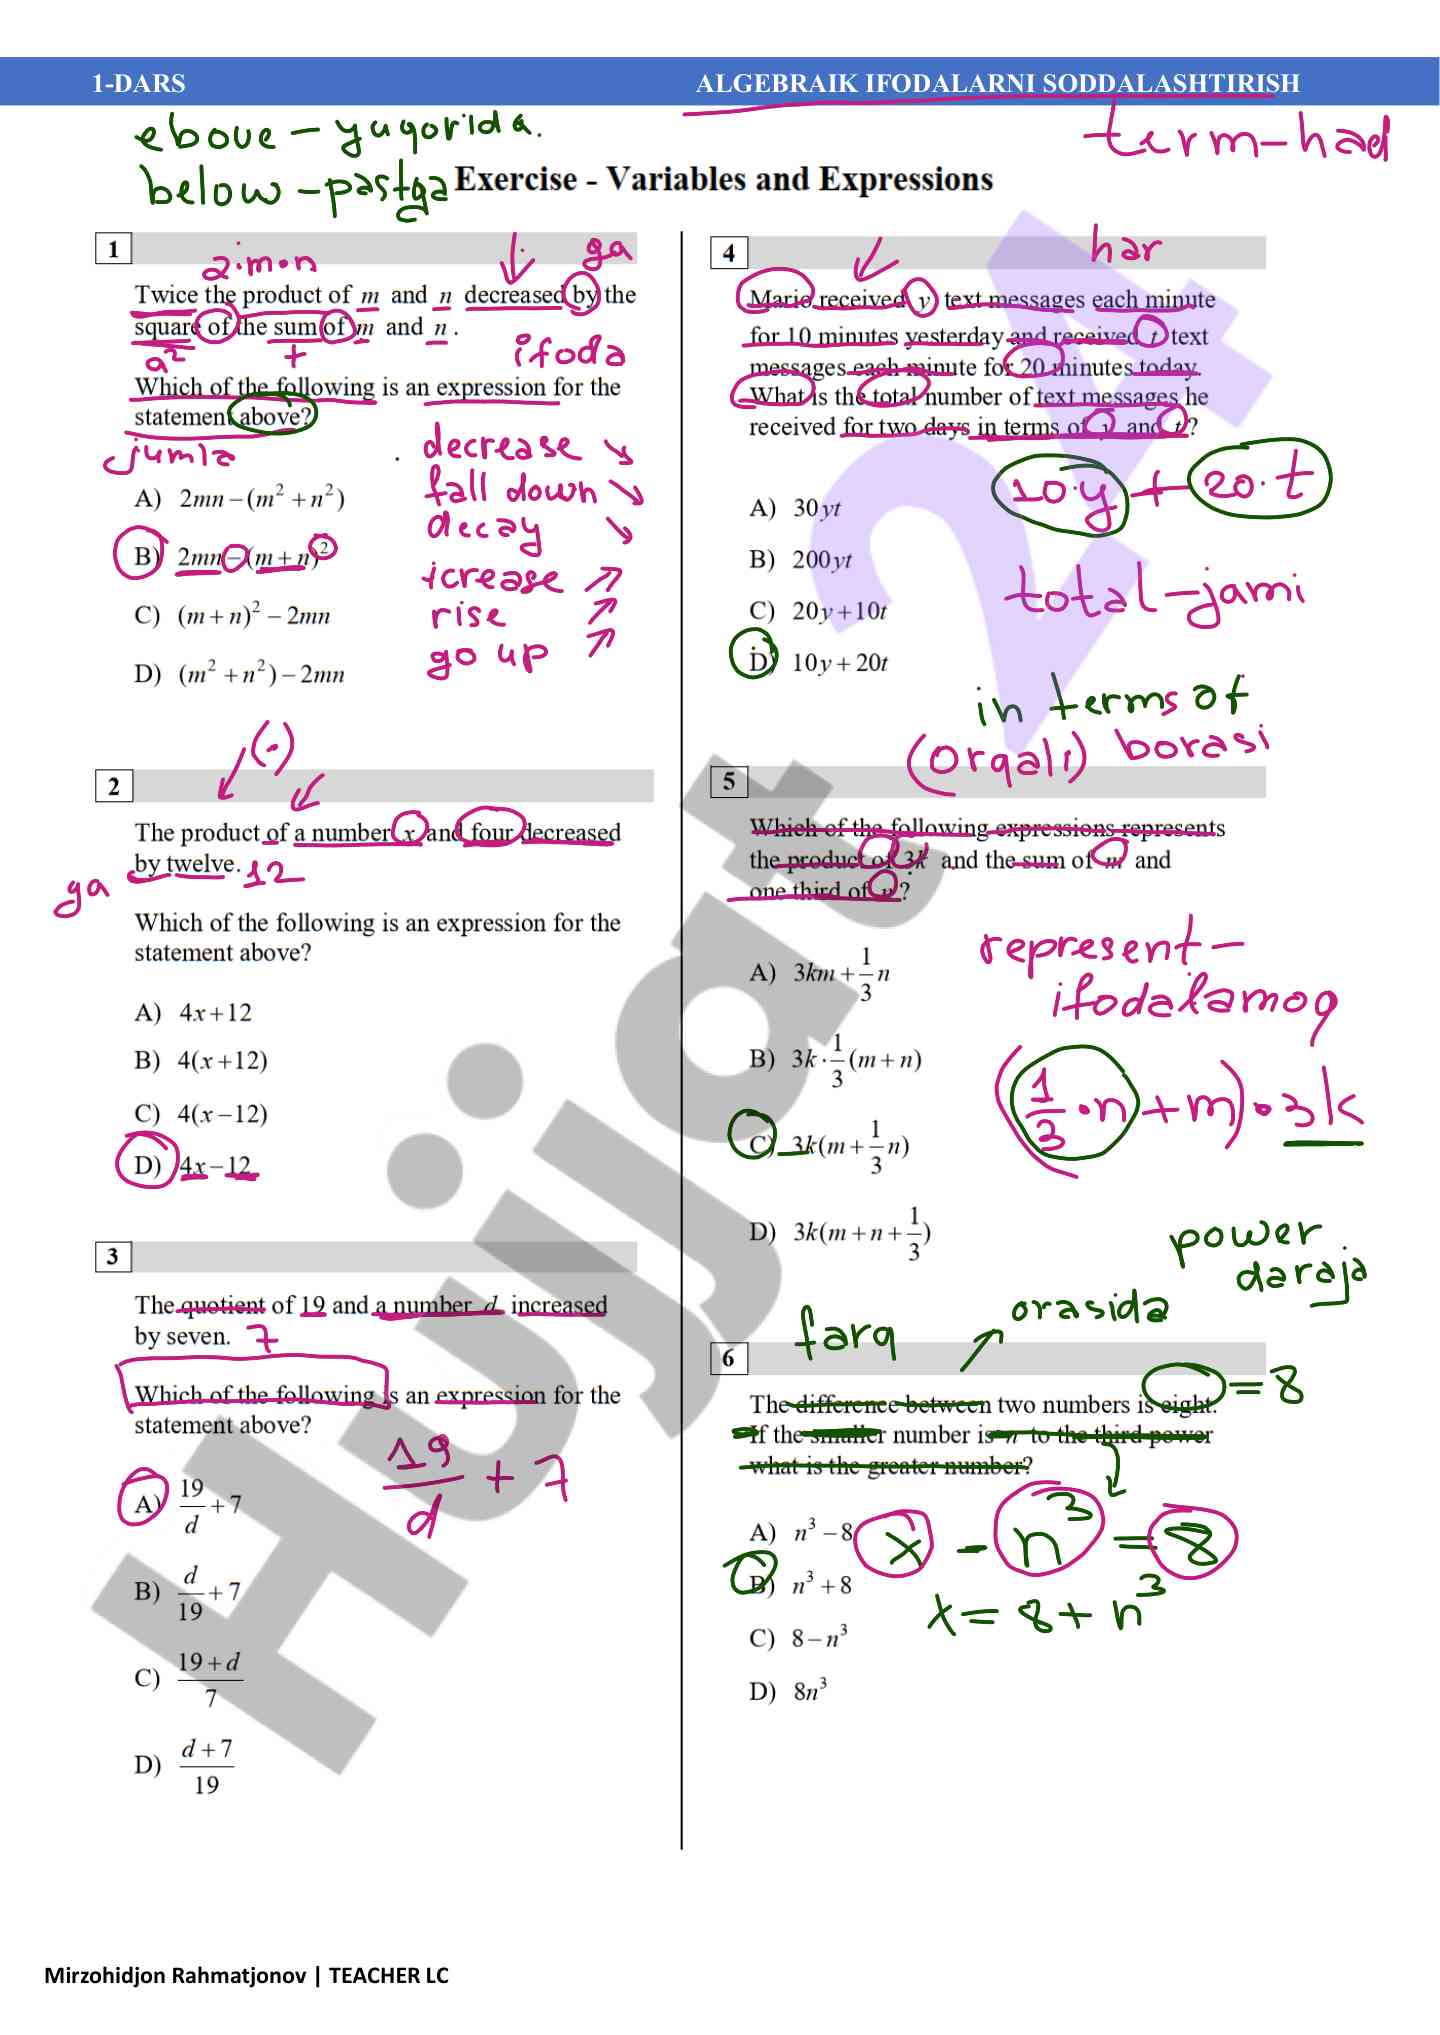 1-DARS
ALGEBRAIK IFODALARNI SODDALASHTIRISH
eboue – yuqorida.
below – pastga
term – had
Exercise - Variables and Expressions
1
2·m·n
ga
Twice the product of m and n decreased by the
square of the sum of m and n .
a²
+
ifoda
Which of the following is an expression for the
statement above?
jumla
decrease ↘
fall down ↘
decay ↘
icrease ↗
rise ↗
go up ↗
A) 2mn – (m² + n²)
B) 2mn – (m + n)²
C) (m + n)² – 2mn
D) (m² + n²) – 2mn
(·)
2
The product of a number x and four decreased
by twelve. 12
ga
Which of the following is an expression for the
statement above?
A) 4x + 12
B) 4(x + 12)
C) 4(x – 12)
D) 4x – 12
3
The quotient of 19 and a number d increased
by seven. 7
Which of the following is an expression for the
statement above?
19/d + 7
A) 19/d + 7
B) d/19 + 7
C) (19 + d)/7
D) (d + 7)/19
4
har
Mario received y text messages each minute
for 10 minutes yesterday and received t text
messages each minute for 20 minutes today.
What is the total number of text messages he
received for two days in terms of y and t ?
10·y + 20·t
A) 30yt
B) 200yt
C) 20y + 10t
D) 10y + 20t
total – jami
in terms of
(orqali) borasi
5
Which of the following expressions represents
the product of 3k and the sum of m and
one third of n ?
represent –
ifodalamoq
A) 3km + 1/3 n
B) 3k · 1/3 (m + n)
C) 3k(m + 1/3 n)
D) 3k(m + n + 1/3)
(1/3 · n + m) · 3k
power
daraja
farq
orasida
6
= 8
The difference between two numbers is eight.
If the smaller number is n to the third power
what is the greater number?
A) n³ – 8
B) n³ + 8
C) 8 – n³
D) 8n³
x – n³ = 8
x = 8 + n³
Hujjat 24
Mirzohidjon Rahmatjonov | TEACHER LC